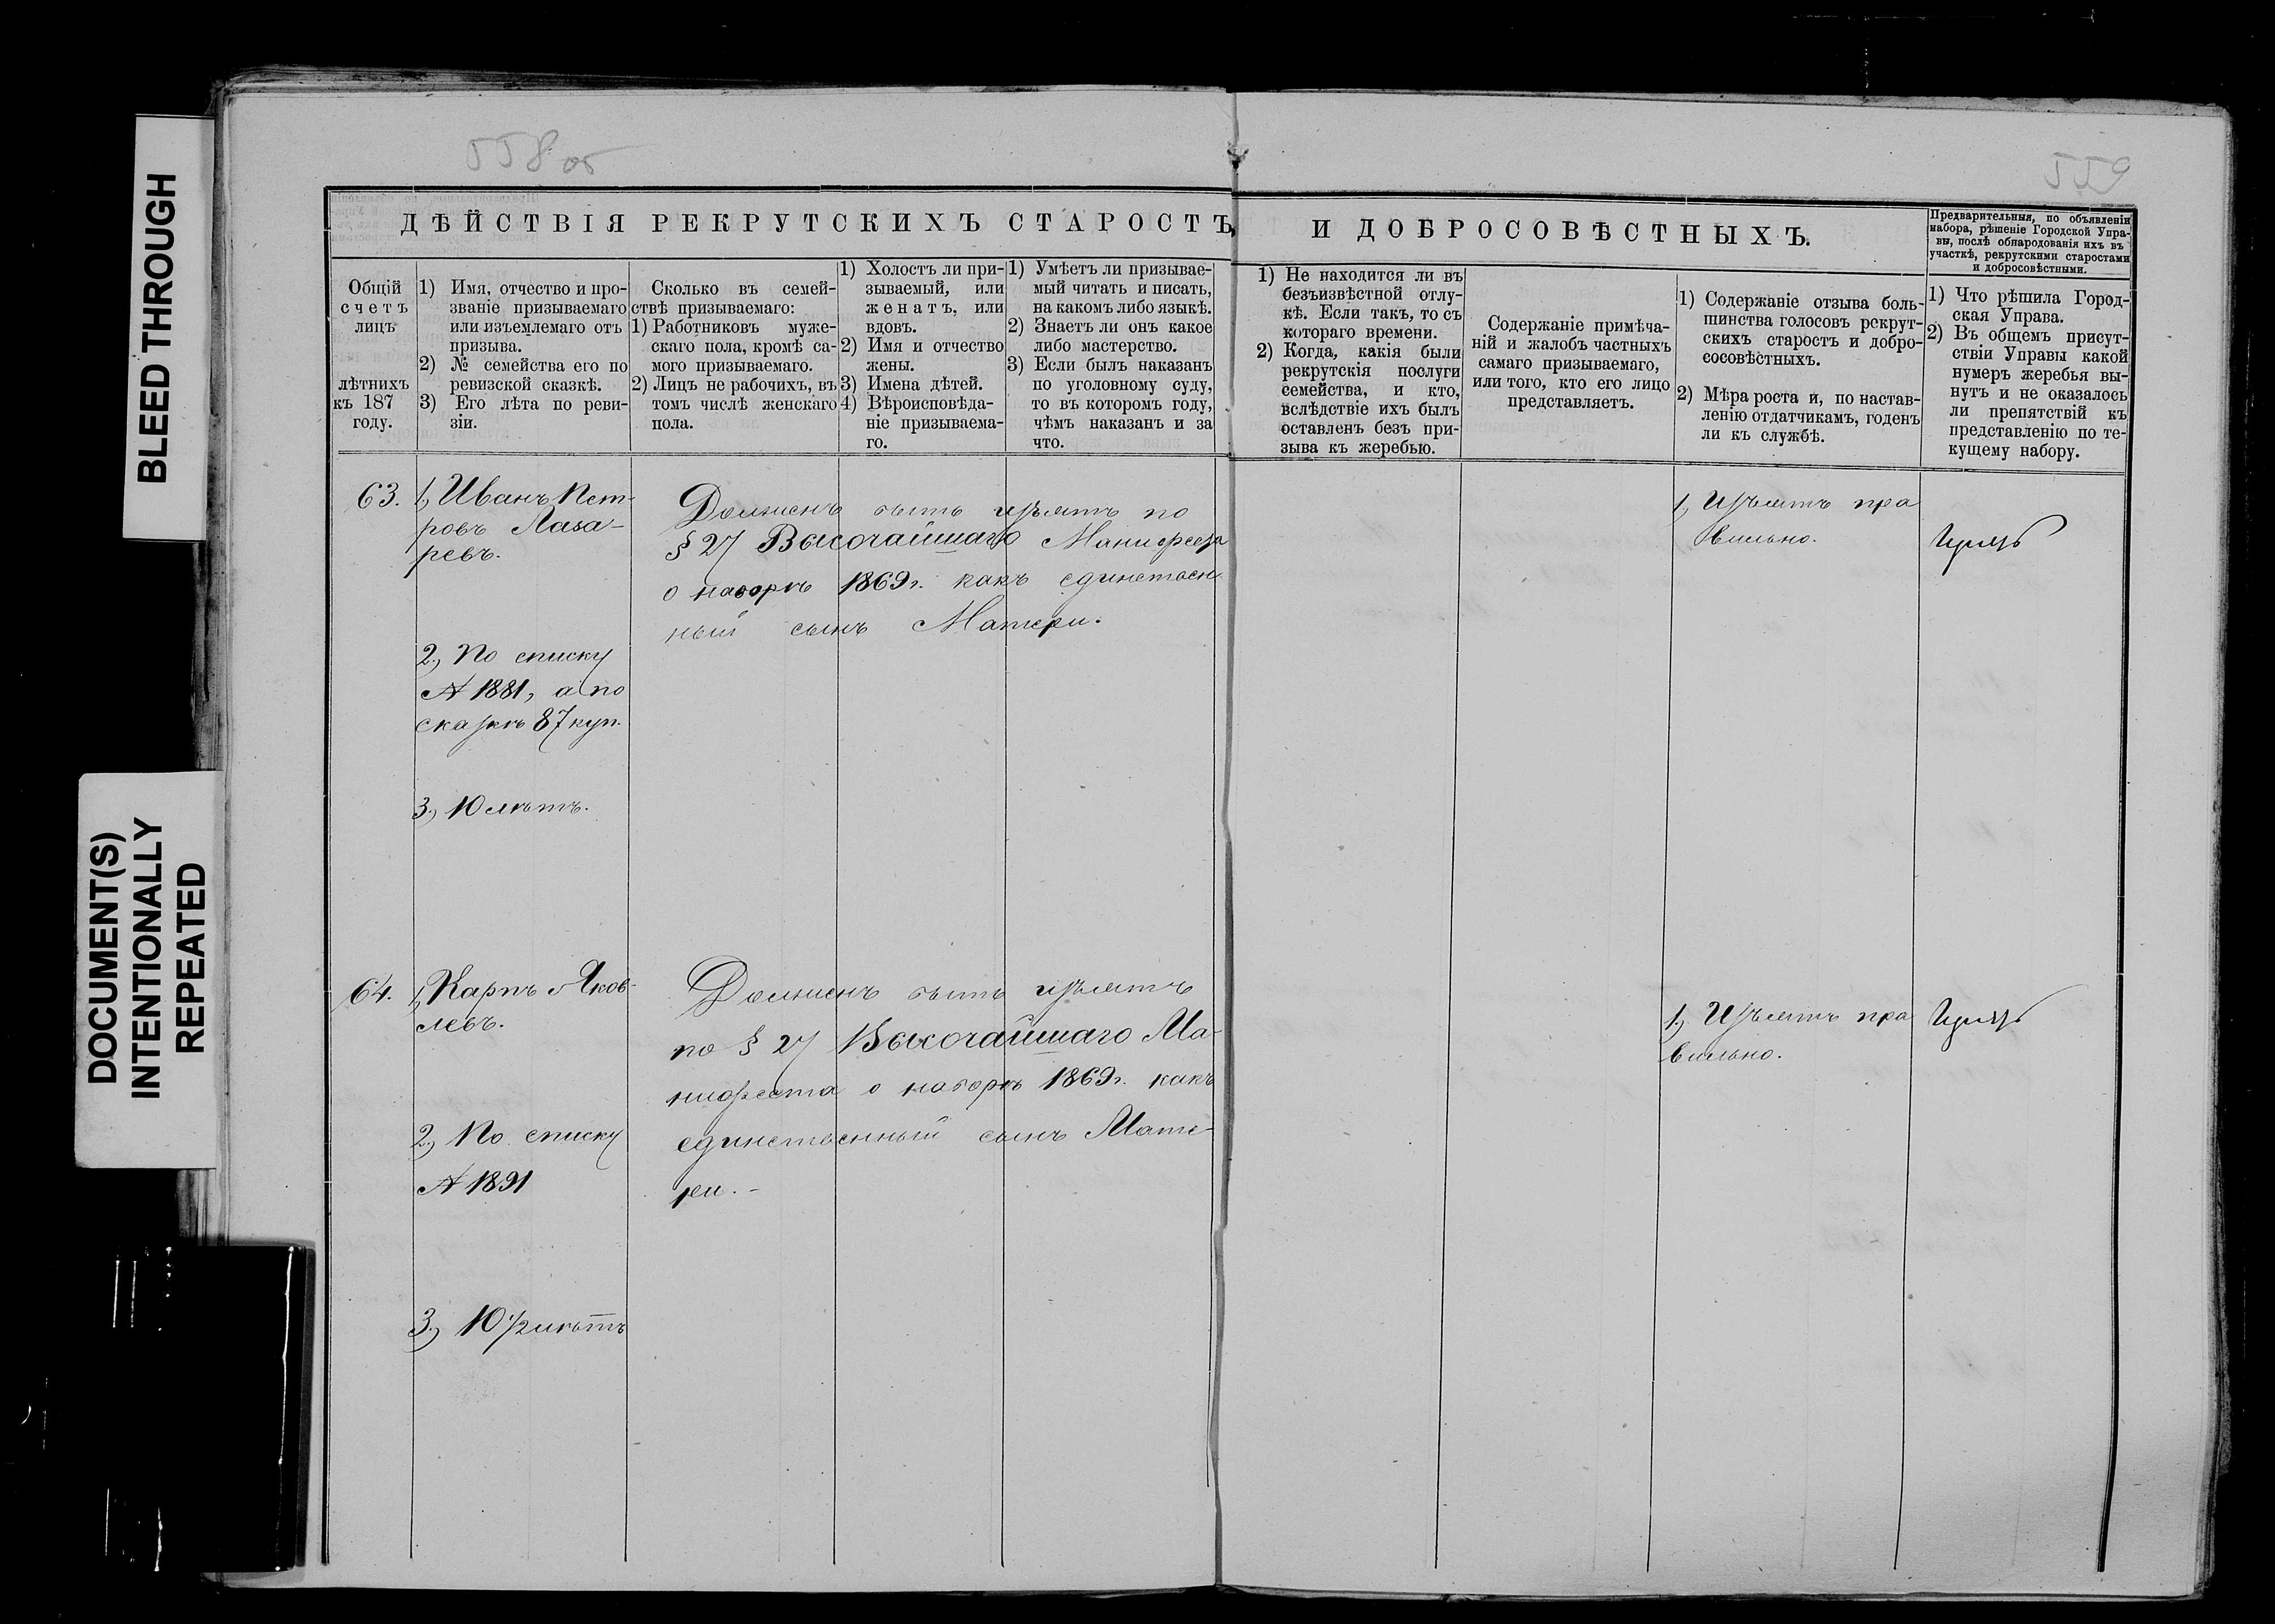 BLEED THROUGH
DOCUMENT(S)
INTENTIONALLY
REPEATED
558 об
559
ДѢЙСТВІЯ РЕКРУТСКИХЪ СТАРОСТЪ
И ДОБРОСОВѢСТНЫХЪ.
Предварительныя, по объявленіи
набора, рѣшеніе Городской Упра-
вы, послѣ обнародованія ихъ въ
участкѣ, рекрутскими старостами
и добросовѣстными.
Общій
счетъ
лицъ
лѣтнихъ
къ 187
году.
1) Имя, отчество и про-
званіе призываемаго
или изъемлемаго отъ
призыва.
2) № семейства его по
ревизской сказкѣ.
3) Его лѣта по реви-
зіи.
Сколько въ семей-
ствѣ призываемаго:
1) Работниковъ муже-
скаго пола, кромѣ са-
мого призываемаго.
2) Лицъ не рабочихъ, въ
томъ числѣ женскаго
пола.
1) Холостъ ли при-
зываемый, или
женатъ, или
вдовъ.
2) Имя и отчество
жены.
3) Имена дѣтей.
4) Вѣроисповѣда-
ніе призываема-
го.
1) Умѣетъ ли призывае-
мый читать и писать,
на какомъ либо языкѣ.
2) Знаетъ ли онъ какое
либо мастерство.
3) Если былъ наказанъ
по уголовному суду,
то въ которомъ году,
чѣмъ наказанъ и за
что.
1) Не находится ли въ
безъизвѣстной отлу-
кѣ. Если такъ, то съ
котораго времени.
2) Когда, какія были
рекрутскія послуги
семейства, и кто,
вслѣдствіе ихъ былъ
оставленъ безъ при-
зыва къ жеребью.
Содержаніе примѣча-
ній и жалобъ частныхъ
самаго призываемаго,
или того, кто его лицо
представляетъ.
1) Содержаніе отзыва боль-
шинства голосовъ рекрут-
скихъ старостъ и добро-
сосовѣстныхъ.
2) Мѣра роста и, по настав-
ленію отдатчикамъ, годенъ
ли къ службѣ.
1) Что рѣшила Город-
ская Управа.
2) Въ общемъ присут-
ствіи Управы какой
нумеръ жеребья вы-
нутъ и не оказалось
ли препятствій къ
представленію по те-
кущему набору.
63.
1, Иванъ Пет-
ровъ Лаза-
ревъ.
2, По списку
№ 1881, а по
сказкѣ 87 куп.
3, 10 лѣтъ.
Долженъ быть изъятъ по
§ 27 Высочайшаго Манифеста
о наборѣ 1869 г. какъ единствен
ный сынъ Матери.
1, Изъятъ пра
вильно.
64.
1, Карпъ Яков-
левъ.
2, По списку
№ 1891
3, 10 1/2 лѣтъ
Долженъ быть изъятъ
по § 27 Высочайшаго Ма-
нифеста о наборѣ 1869 г. какъ
единственный сынъ Мате-
ри. -
1, Изъятъ пра
вильно.